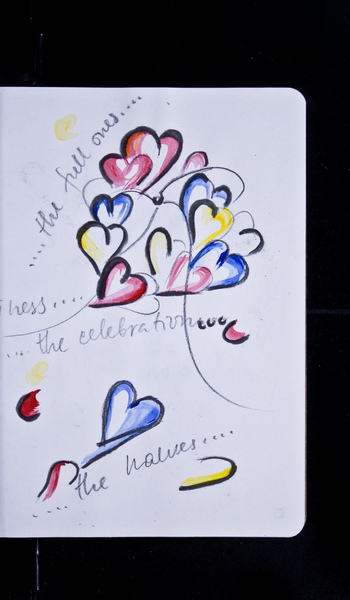 .... the full ones....
ness....
... the celebration too
.... the halves....